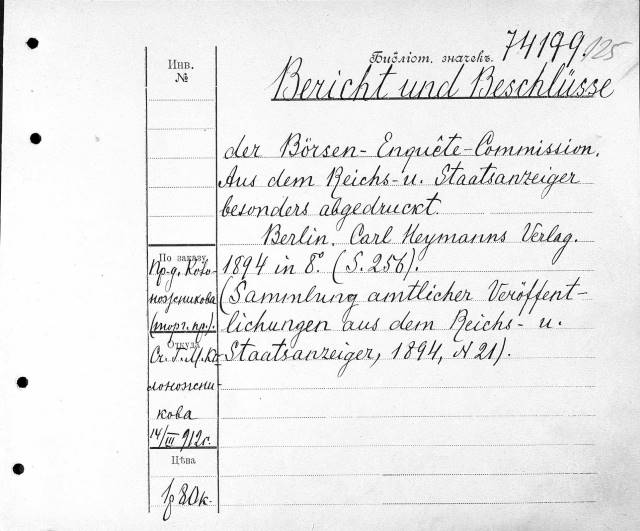 Библіот. значекъ. 74199.
125
Инв.
№
Bericht und Beschlüsse
der Börsen-Enquête-Commission.
Aus dem Reichs- u. Staatsanzeiger
besonders abgedruckt.
Berlin. Carl Heymanns Verlag.
1894 in 8°. (S. 256).
(Sammlung amtlicher Veröffent-
lichungen aus dem Reichs- u.
Staatsanzeiger, 1894, N 21).
По заказу
Пр-д. Коло-
ножникова
(торг. пр.).
Откуда
Сч. Г. М. Ко-
лоножни-
кова
14/III 912г.
Цѣна
1р 80к.